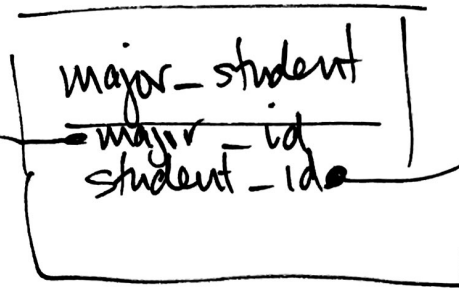 major_student
major_id
student_id